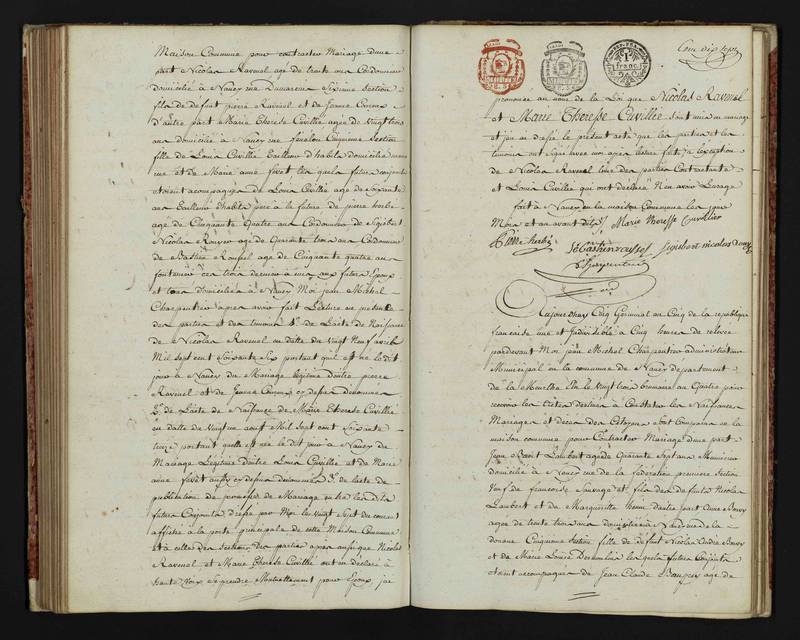 Maison Commune pour contracter Mariage d'une
part Nicolas Raveuel agé de trente ans Cordonnier
domicilié à Nancy rue sixieme Section
fils de defunt pierre Raveuel et de Jeanne
d'autre part Marie Therese Cuvillié agée de vingt trois
ans domiciliée à Nancy rue fénélon Cinquieme Section
fille de Louis Cuvillié tailleur d'habits domicilié meme
rue et de Marie anne fevet les quels futurs conjoints
etoient accompagnés de Louis Cuvillié agé de soixante
ans tailleur d'habits pere à la future de pierre herbé
agé de Cinquante Quatre ans Cordonnier de Sigibert
Nicolas agé de Quarente trois ans Cordonnier
de Bastien Roussel agé de Cinquante quatre ans
fontainier ces trois derniers amis aux futurs Epoux
et tous domiciliés à Nancy Moi jean Michel
Charpentier après avoir fait Lecture en presence
des parties et des temoins 1° de L'acte de Naissance
de Nicolas Raveuel en datte du vingt Neuf avril
Mil sept cent soixante six portant qu'il est né le dit
jour à Nancy du Mariage légitime d'entre pierre
Raveuel et de Jeanne cy dessus denommés
2° de L'acte de Naissance de Marie Therese Cuvillié
en datte de vingt un aout Mil sept cent soixante
treize portant quelle est née le dit jour à Nancy du
Mariage Légitime d'entre Louis Cuvillié et de Marie
anne fevet aussy cy dessus denommés 3° de l'acte de
publication de promesse de Mariage entre les dits
futurs Conjoints dressé par Moi le vingt sept du courant
affiché à la porte principale de cette Maison Commune
et à celles des sections des parties apres aussi que Nicolas
Raveuel et Marie Therese Cuvillié ont eu déclaré à
haute voix se prendre Mutuellement pour Epoux, jai
Cent dix sept
1 franc
prononcé au nom de la Loi que Nicolas Raveuel
et Marie Therese Cuvillié sont unis en mariage
et jai dressé le présent acte que les parties et les
temoins ont signé avec moi après lecture faite, à l'exception
de Nicolas Raveuel l'une des parties Contractante
et Louis Cuvillié qui ont declaré N'en avoir L'usage
fait à Nancy en la maison Commune les jour
Mois et an avant dits Marie Theresse Cuvillier
Pierre herbé Sebastien roussel Sigisbert nicolas
Charpentier
Aujourdhuy Cinq Germinal an Cinq de la republique
francaise une et Indivisible à Cinq heures de relevée
pardevant Moi jean Michel Charpentier administrateur
Municipal en la commune de Nancy departement
de la Meurthe Elu le vingt trois brumaire an Quatre pour
recevoir les actes destinés à Constater les Naissances
Mariages et décès des Citoyens sont Comparus en la
maison commune pour Contracter Mariage d'une part
Jean Benoit Laubert agé de Quarante sept ans Menuisier
domicilié à Nancy rue de la federation premiere section
Veuf de francoise Sauvage et fils des defunts Nicolas
Laubert et de Marguerite d'autre part Anne Bouvy
agée de trente trois ans domiciliée à Nancy rue de la
douane Cinquieme section fille de defunt Nicolas Andre Bouvy
et de Marie Louise les quels futurs Conjoints
etoient accompagnés de Jean Claude agé de